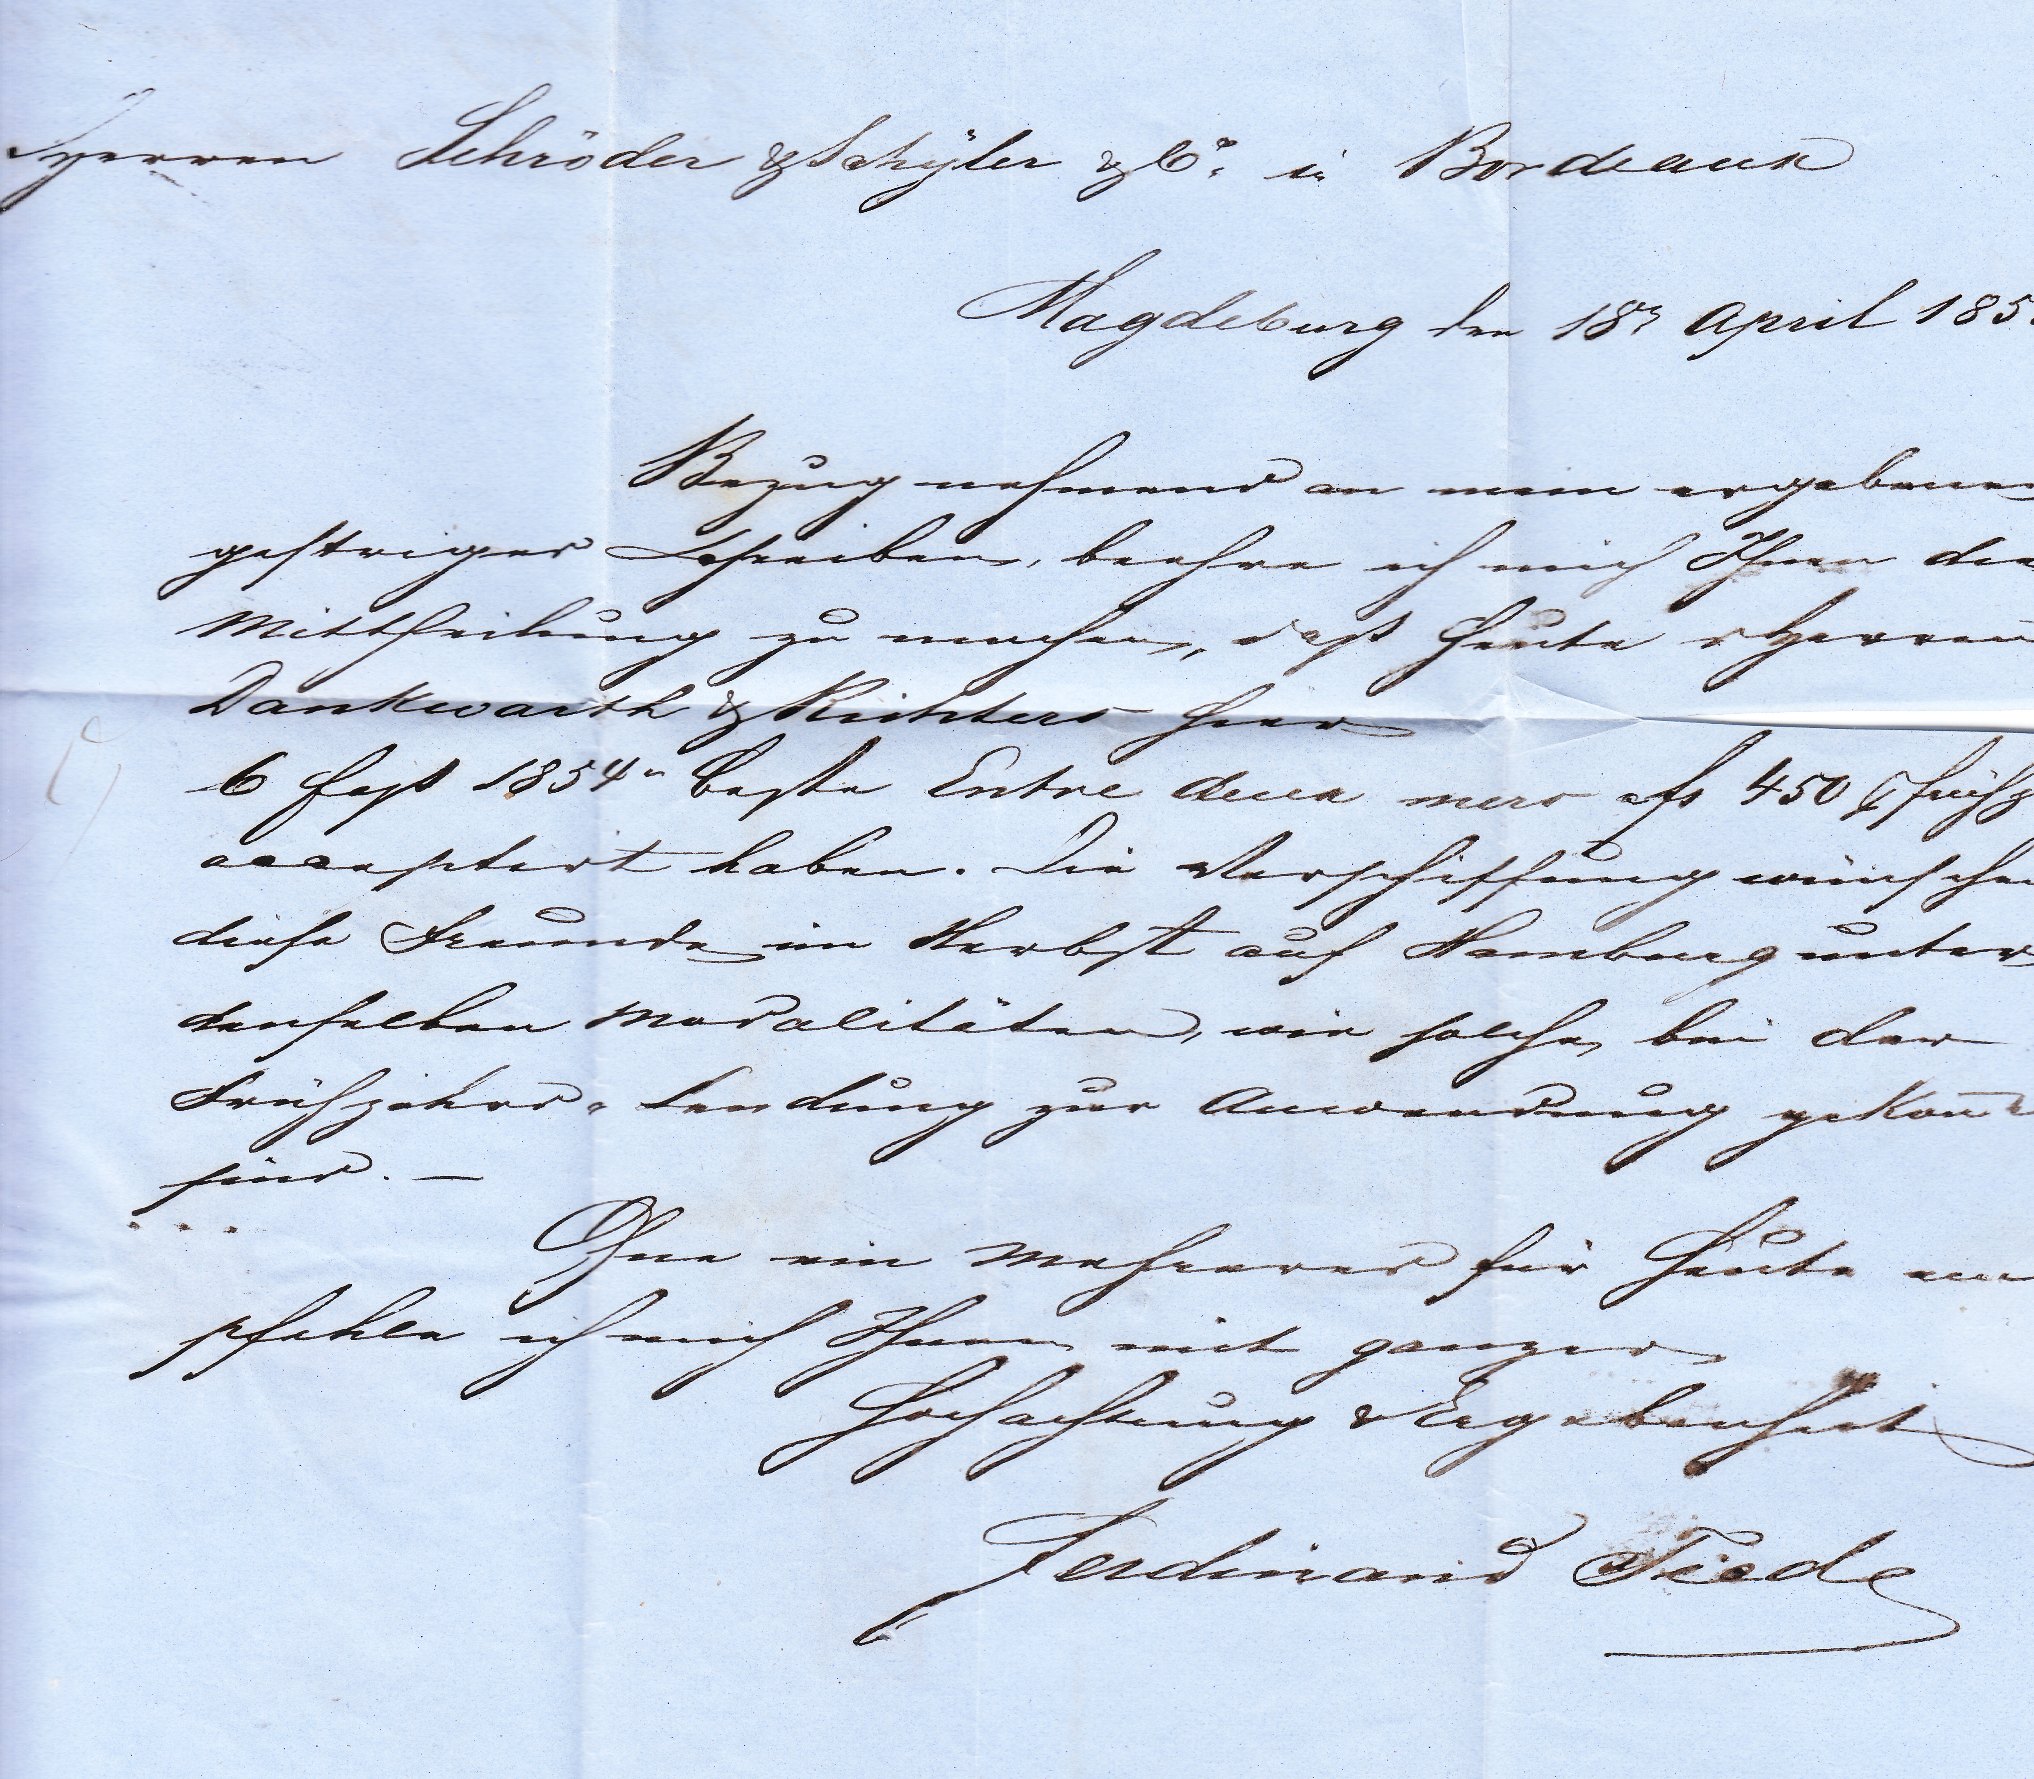 Herren Schröder & Schÿler & Co. in Bordeaux
Magdeburg den 18n April 185
Bezug nehmend an mein ergebenes
gestriges Schreiben, beehre ich mich Ihnen die
Mittheilung zu machen, daß heute d Herren
Dankwarth & Richters hier
6 Faß 1854er beste Entre deux mers afs 450
acceptirt haben. Die Verschiffung wünschen
diese Freunde im Herbst auf Hamburg unter
denselben Modalitäten, wie solche bei der
Frühjahrs-Sendung zur Anwendung gekom̄en
sind. —
Ohne ein Mehreres für heute em
pfehle ich mich Ihnen mit ganzer
Hochachtung & Ergebenheit
Ferdinand Tiede